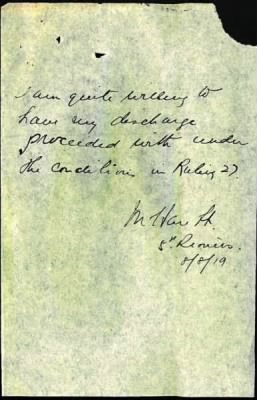 I am quite willing to
have my discharge
proceeded with under
the conditions in Ruling 27.
5th Pioneers.
8/8/19